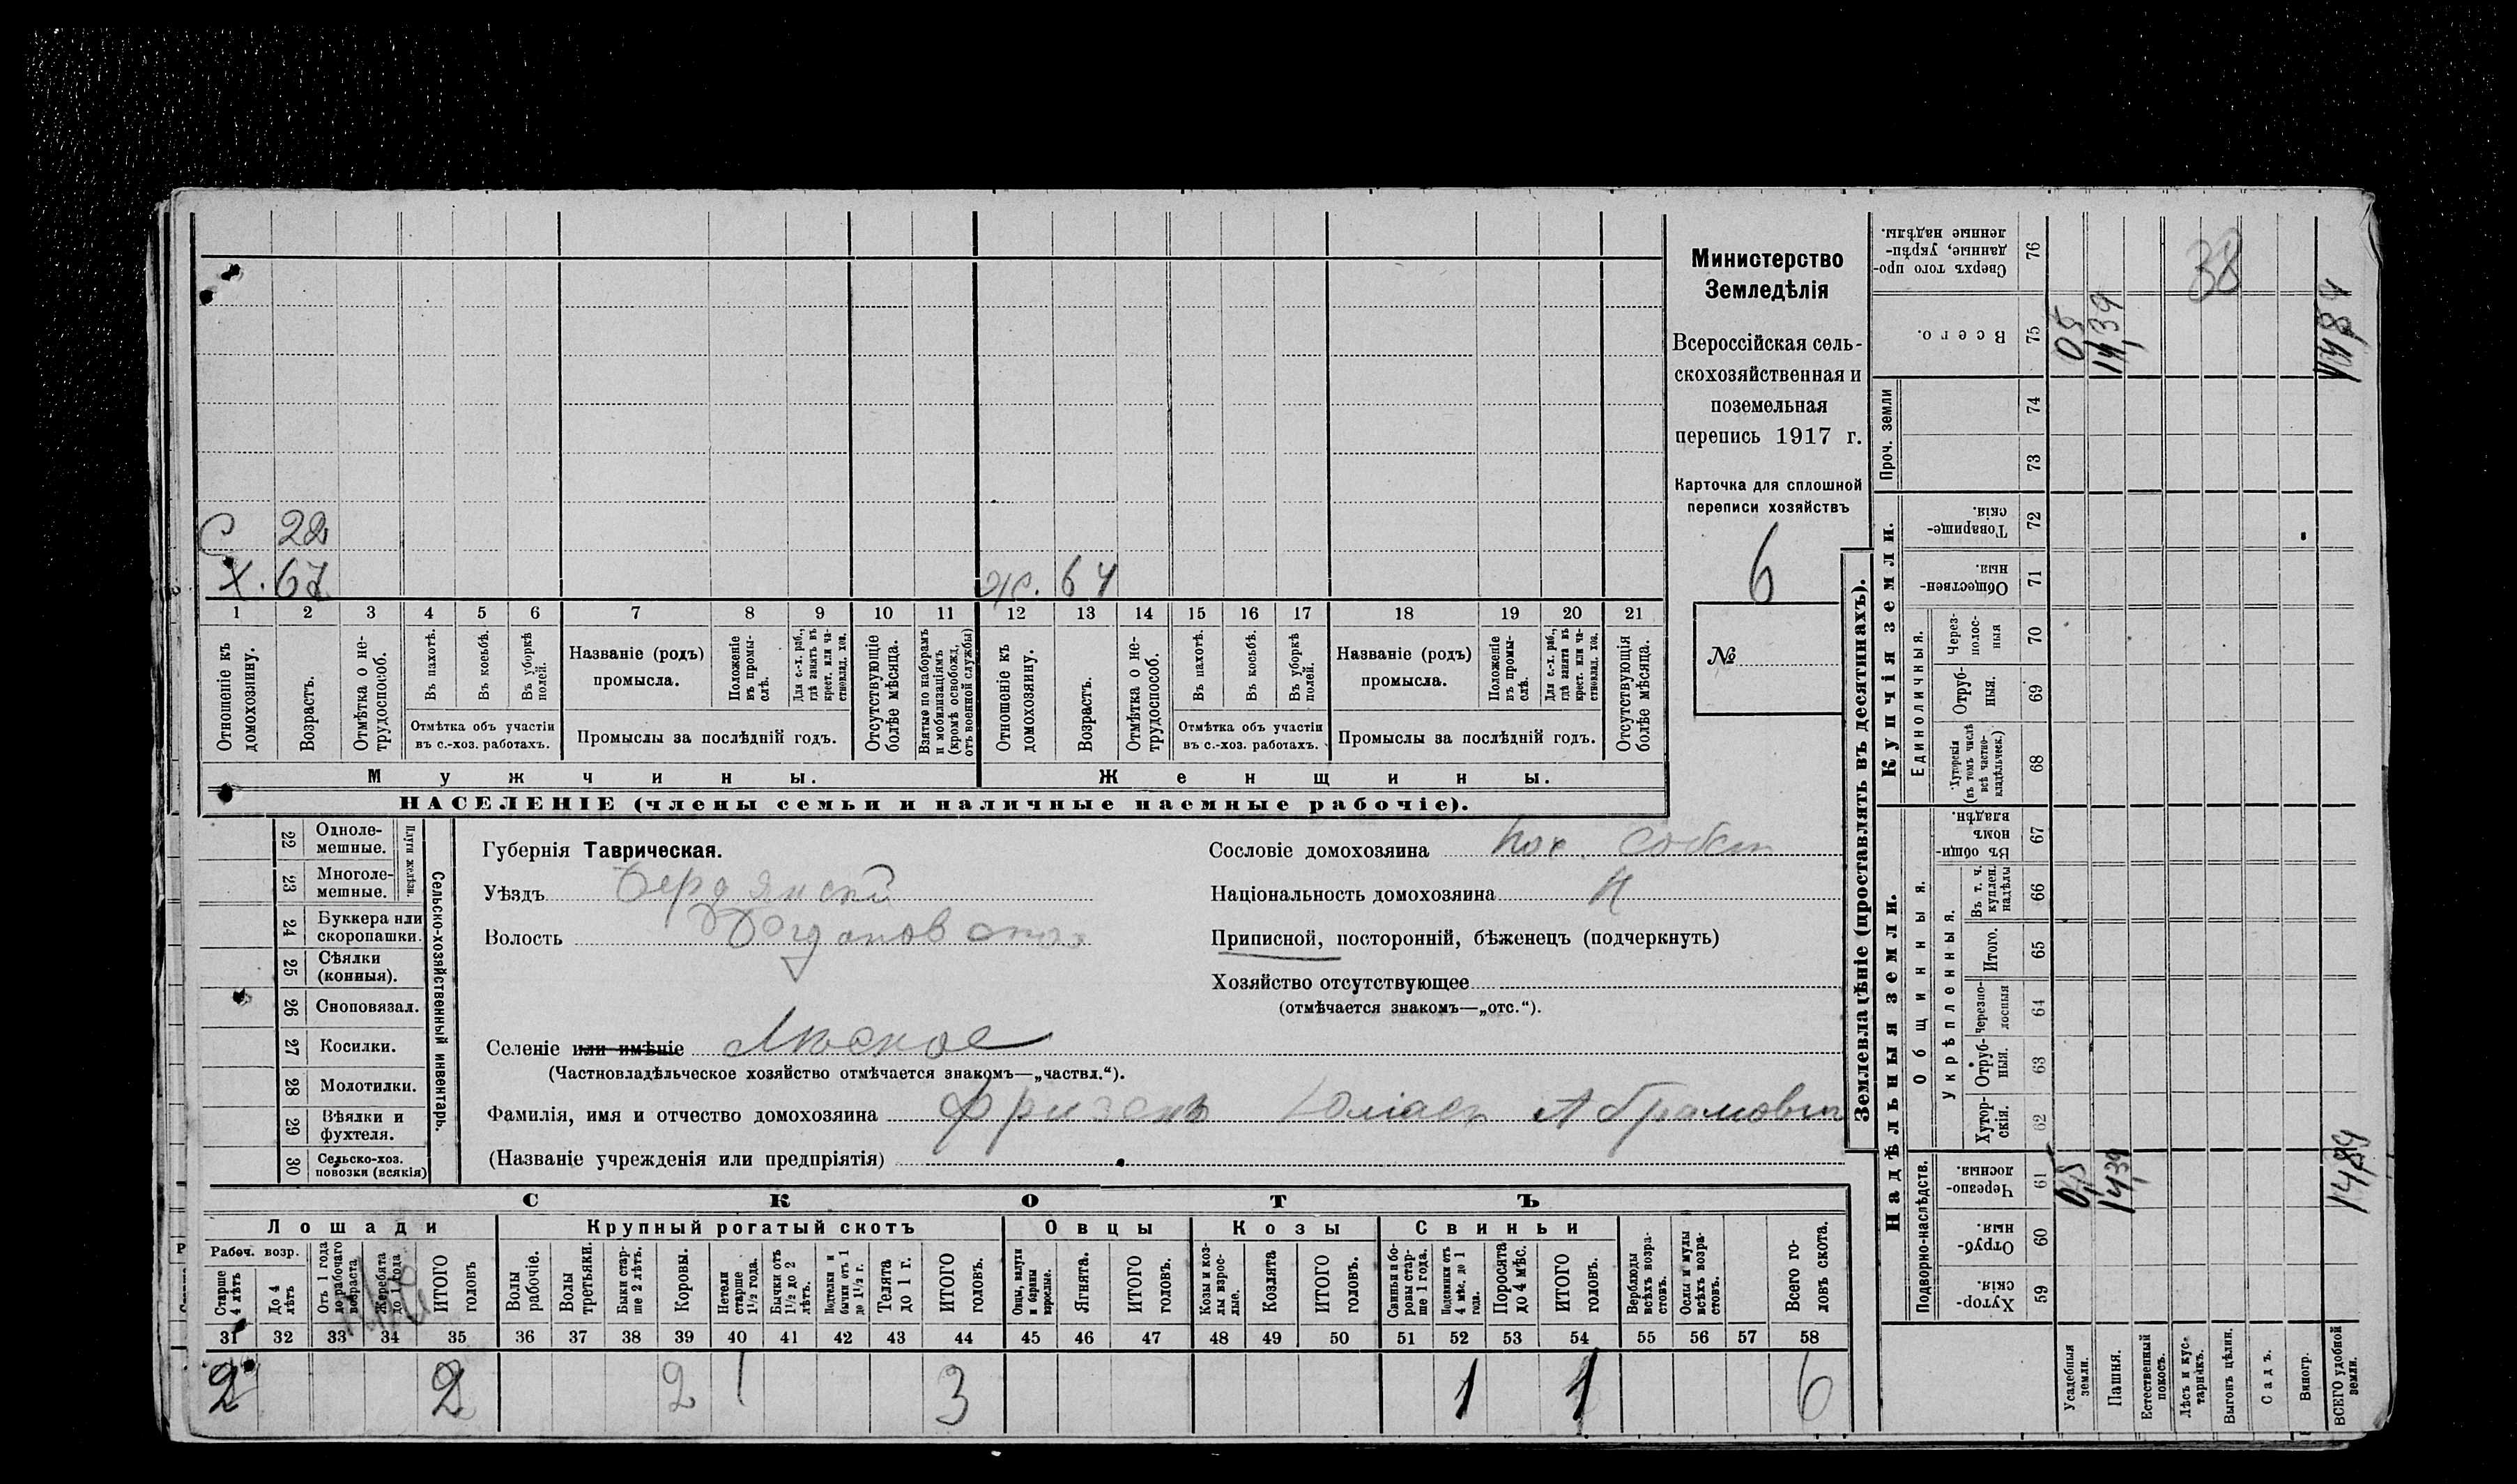 С 22
Х. 67 Ж. 64
1 2 3 4 5 6 7 8 9 10 11 12 13 14 15 16 17 18 19 20 21
Отношеніе къ домохозяину.
Возрастъ.
Отмѣтка о нетрудоспособ.
Въ пахотѣ.
Въ косьбѣ.
Въ уборкѣ полей.
Отмѣтка объ участіи
въ с.-хоз. работахъ.
Названіе (родъ)
промысла.
Положеніе въ промыслѣ.
Для с.-х. раб., гдѣ занятъ въ крест. или частновлад. хоз.
Промыслы за послѣдній годъ.
Отсутствующіе болѣе мѣсяца.
Взятые по наборамъ и мобилизаціямъ (кромѣ освобожд. отъ военной службы)
Отношеніе къ домохозяину.
Возрастъ.
Отмѣтка о нетрудоспособ.
Въ пахотѣ.
Въ косьбѣ.
Въ уборкѣ полей.
Отмѣтка объ участіи
въ с.-хоз. работахъ.
Названіе (родъ)
промысла.
Положеніе въ промыслѣ.
Для с.-х. раб., гдѣ занята въ крест. или частновлад. хоз.
Промыслы за послѣдній годъ.
Отсутствующія болѣе мѣсяца.
Мужчины.
Женщины.
НАСЕЛЕНІЕ (члены семьи и наличные наемные рабочіе).
Министерство
Земледѣлія
Всероссійская сель-
скохозяйственная и
поземельная
перепись 1917 г.
Карточка для сплошной
переписи хозяйствъ
6
№
22 Одноле-
мешные.
23 Многоле-
мешные.
Плуги желѣзн.
24 Буккера или
скоропашки.
25 Сѣялки
(конныя).
26 Сноповязал.
27 Косилки.
28 Молотилки.
29 Вѣялки и
фухтеля.
30 Сельско-хоз.
повозки (всякія)
Сельско-хозяйственный инвентарь.
Губернія Таврическая.
Уѣздъ Бердянскій
Волость
Селеніе или имѣніе
(Частновладѣльческое хозяйство отмѣчается знакомъ—„частвл.“).
Фамилія, имя и отчество домохозяина Фризенъ Абрамовичъ
(Названіе учрежденія или предпріятія)
Сословіе домохозяина пос. собст
Національность домохозяина Н
Приписной, посторонній, бѣженецъ (подчеркнуть)
Хозяйство отсутствующее
(отмѣчается знакомъ—„отс.“).
СКОТЪ
Лошади
Крупный рогатый скотъ
Овцы
Козы
Свиньи
Рабоч. возр.
Старше 4 лѣтъ
До 4 лѣтъ
Отъ 1 года до рабочаго возраста
Жеребята до 1 года
ИТОГО головъ
Волы рабочіе.
Волы третьяки.
Быки старше 2 лѣтъ.
Коровы.
Нетели старше 1½ года.
Бычки отъ 1½ до 2 лѣтъ.
Подтелки и бычки отъ 1 до 1½ г.
Телята до 1 г.
ИТОГО головъ.
Овцы, валухи и бараны взрослые.
Ягнята.
ИТОГО головъ.
Козы и козлы взрослые.
Козлята
ИТОГО головъ.
Свиньи и боровы старше 1 года.
Подсвинки отъ 4 мѣс. до 1 года.
Поросята до 4 мѣс.
ИТОГО головъ.
Верблюды всѣхъ возрастовъ.
Ослы и мулы всѣхъ возрастовъ.
Всего головъ скота.
31 32 33 34 35 36 37 38 39 40 41 42 43 44 45 46 47 48 49 50 51 52 53 54 55 56 57 58
2 2 2 1 3 1 1 6
Землевладѣніе (проставлять въ десятинахъ).
Надѣльныя земли.
Купчія земли.
Проч. земли
Подворно-наслѣдств.
Общинныя.
Укрѣпленныя.
Единоличныя.
Сверхъ того проданные, укрѣпленные надѣлы. 76
Всего. 75
74
73
Товарищескія. 72
Общественныя. 71
Черезполосныя 70
Отрубныя. 69
Хуторскія (въ томъ числѣ всѣ частновладѣльческ.) 68
Въ общинномъ владѣн. 67
Въ т. ч. куплен. надѣлы 66
Итого. 65
Черезполосныя 64
Отрубныя. 63
Хуторскія. 62
Черезполосныя. 61
Отрубныя. 60
Хуторскія. 59
Усадебныя земли.
Пашня.
Естественный покосъ.
Лѣсъ и кустарникъ.
Выгонъ цѣлин.
Садъ.
Виногр.
ВСЕГО удобной земли.
38
0,5 14,39 14,89
0,5 14,39 14,89